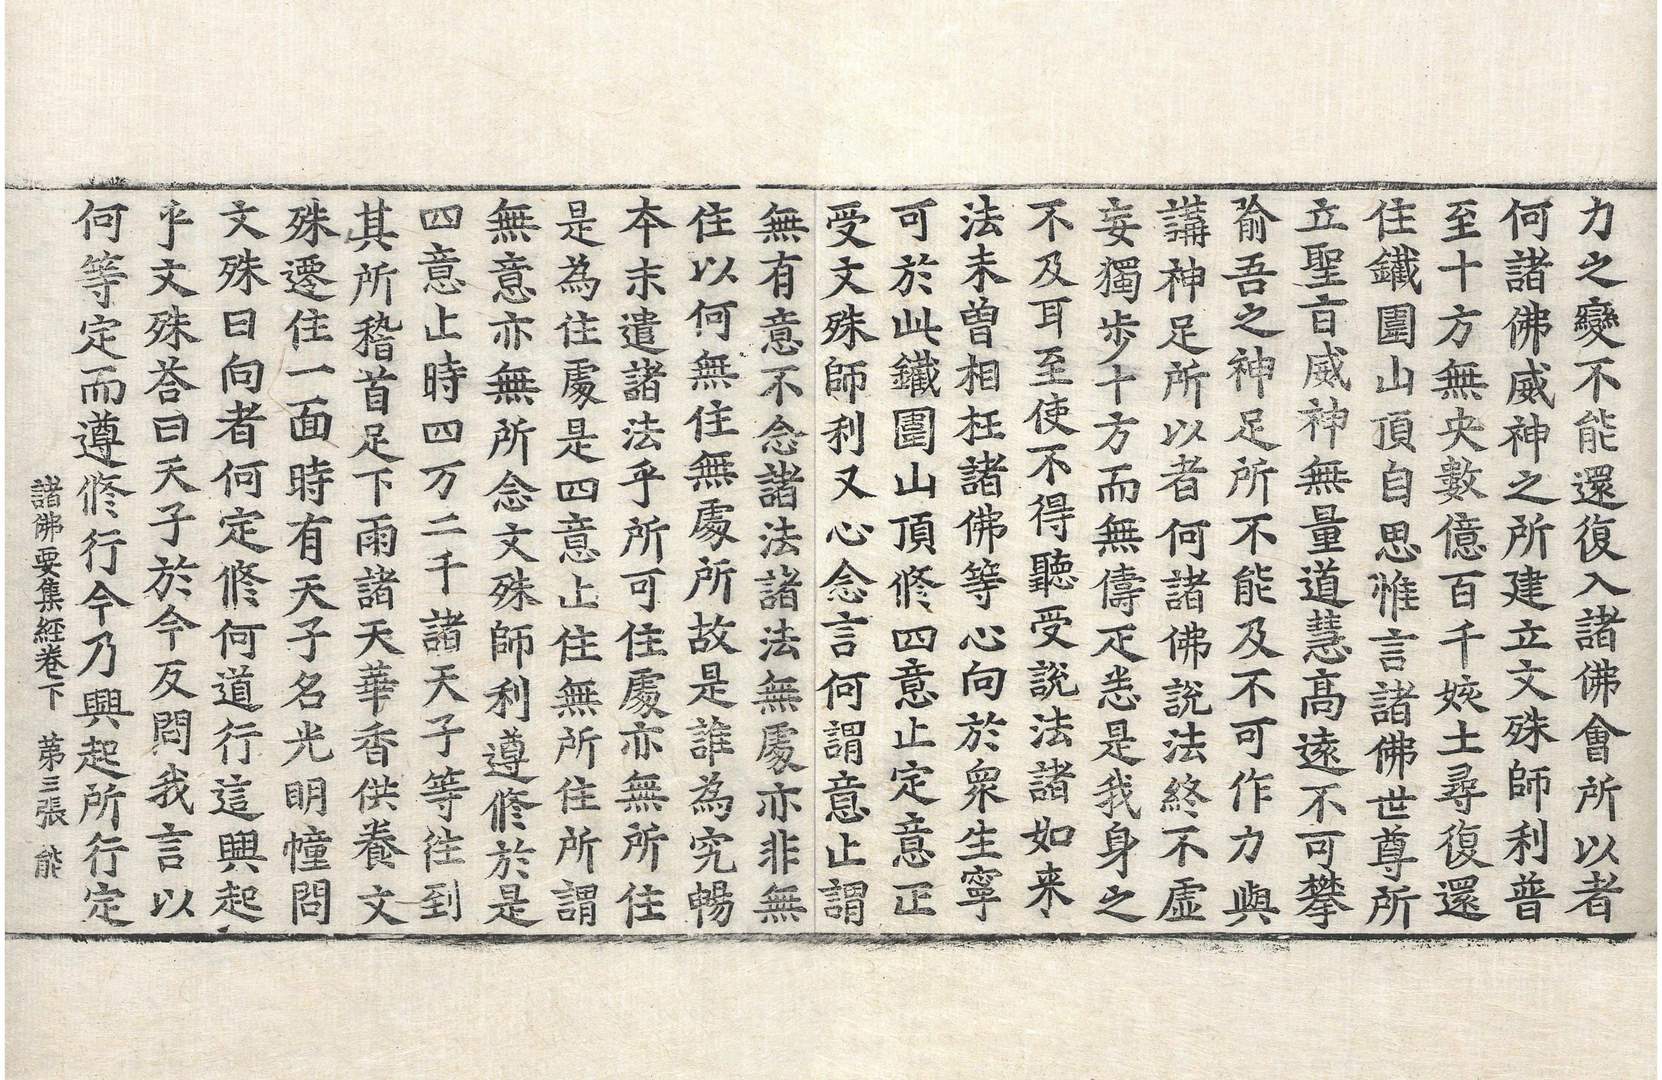 力之變不能還復入諸佛會所以者
何諸佛威神之所建立文殊師利普
至十方無央數億百千姟土尋復還
住鐵圍山頂自思惟言諸佛世尊所
立聖旨威神無量道慧高遠不可攀
喻吾之神足所不能及不可作力與
講神足所以者何諸佛說法終不虛
妄獨步十方而無儔疋悉是我身之
不及耳至使不得聽受說法諸如来
法未曾相枉諸佛等心向於衆生寧
可於此鐵圍山頂修四意止定意正
受文殊師利又心念言何謂意止謂
無有意不念諸法諸法無處亦非無
住以何無住無處所故是誰為究暢
夲末遣諸法乎所可住處亦無所住
是為住處是四意止住無所住所謂
無意亦無所念文殊師利遵修於是
四意止時四万二千諸天子等往到
其所稽首足下雨諸天華香供養文
殊遷住一面時有天子名光明幢問
文殊曰向者何定修何道行這興起
乎文殊荅曰天子於今反問我言以
何等定而遵修行今乃興起所行定
諸佛要集經卷下　第三張　能